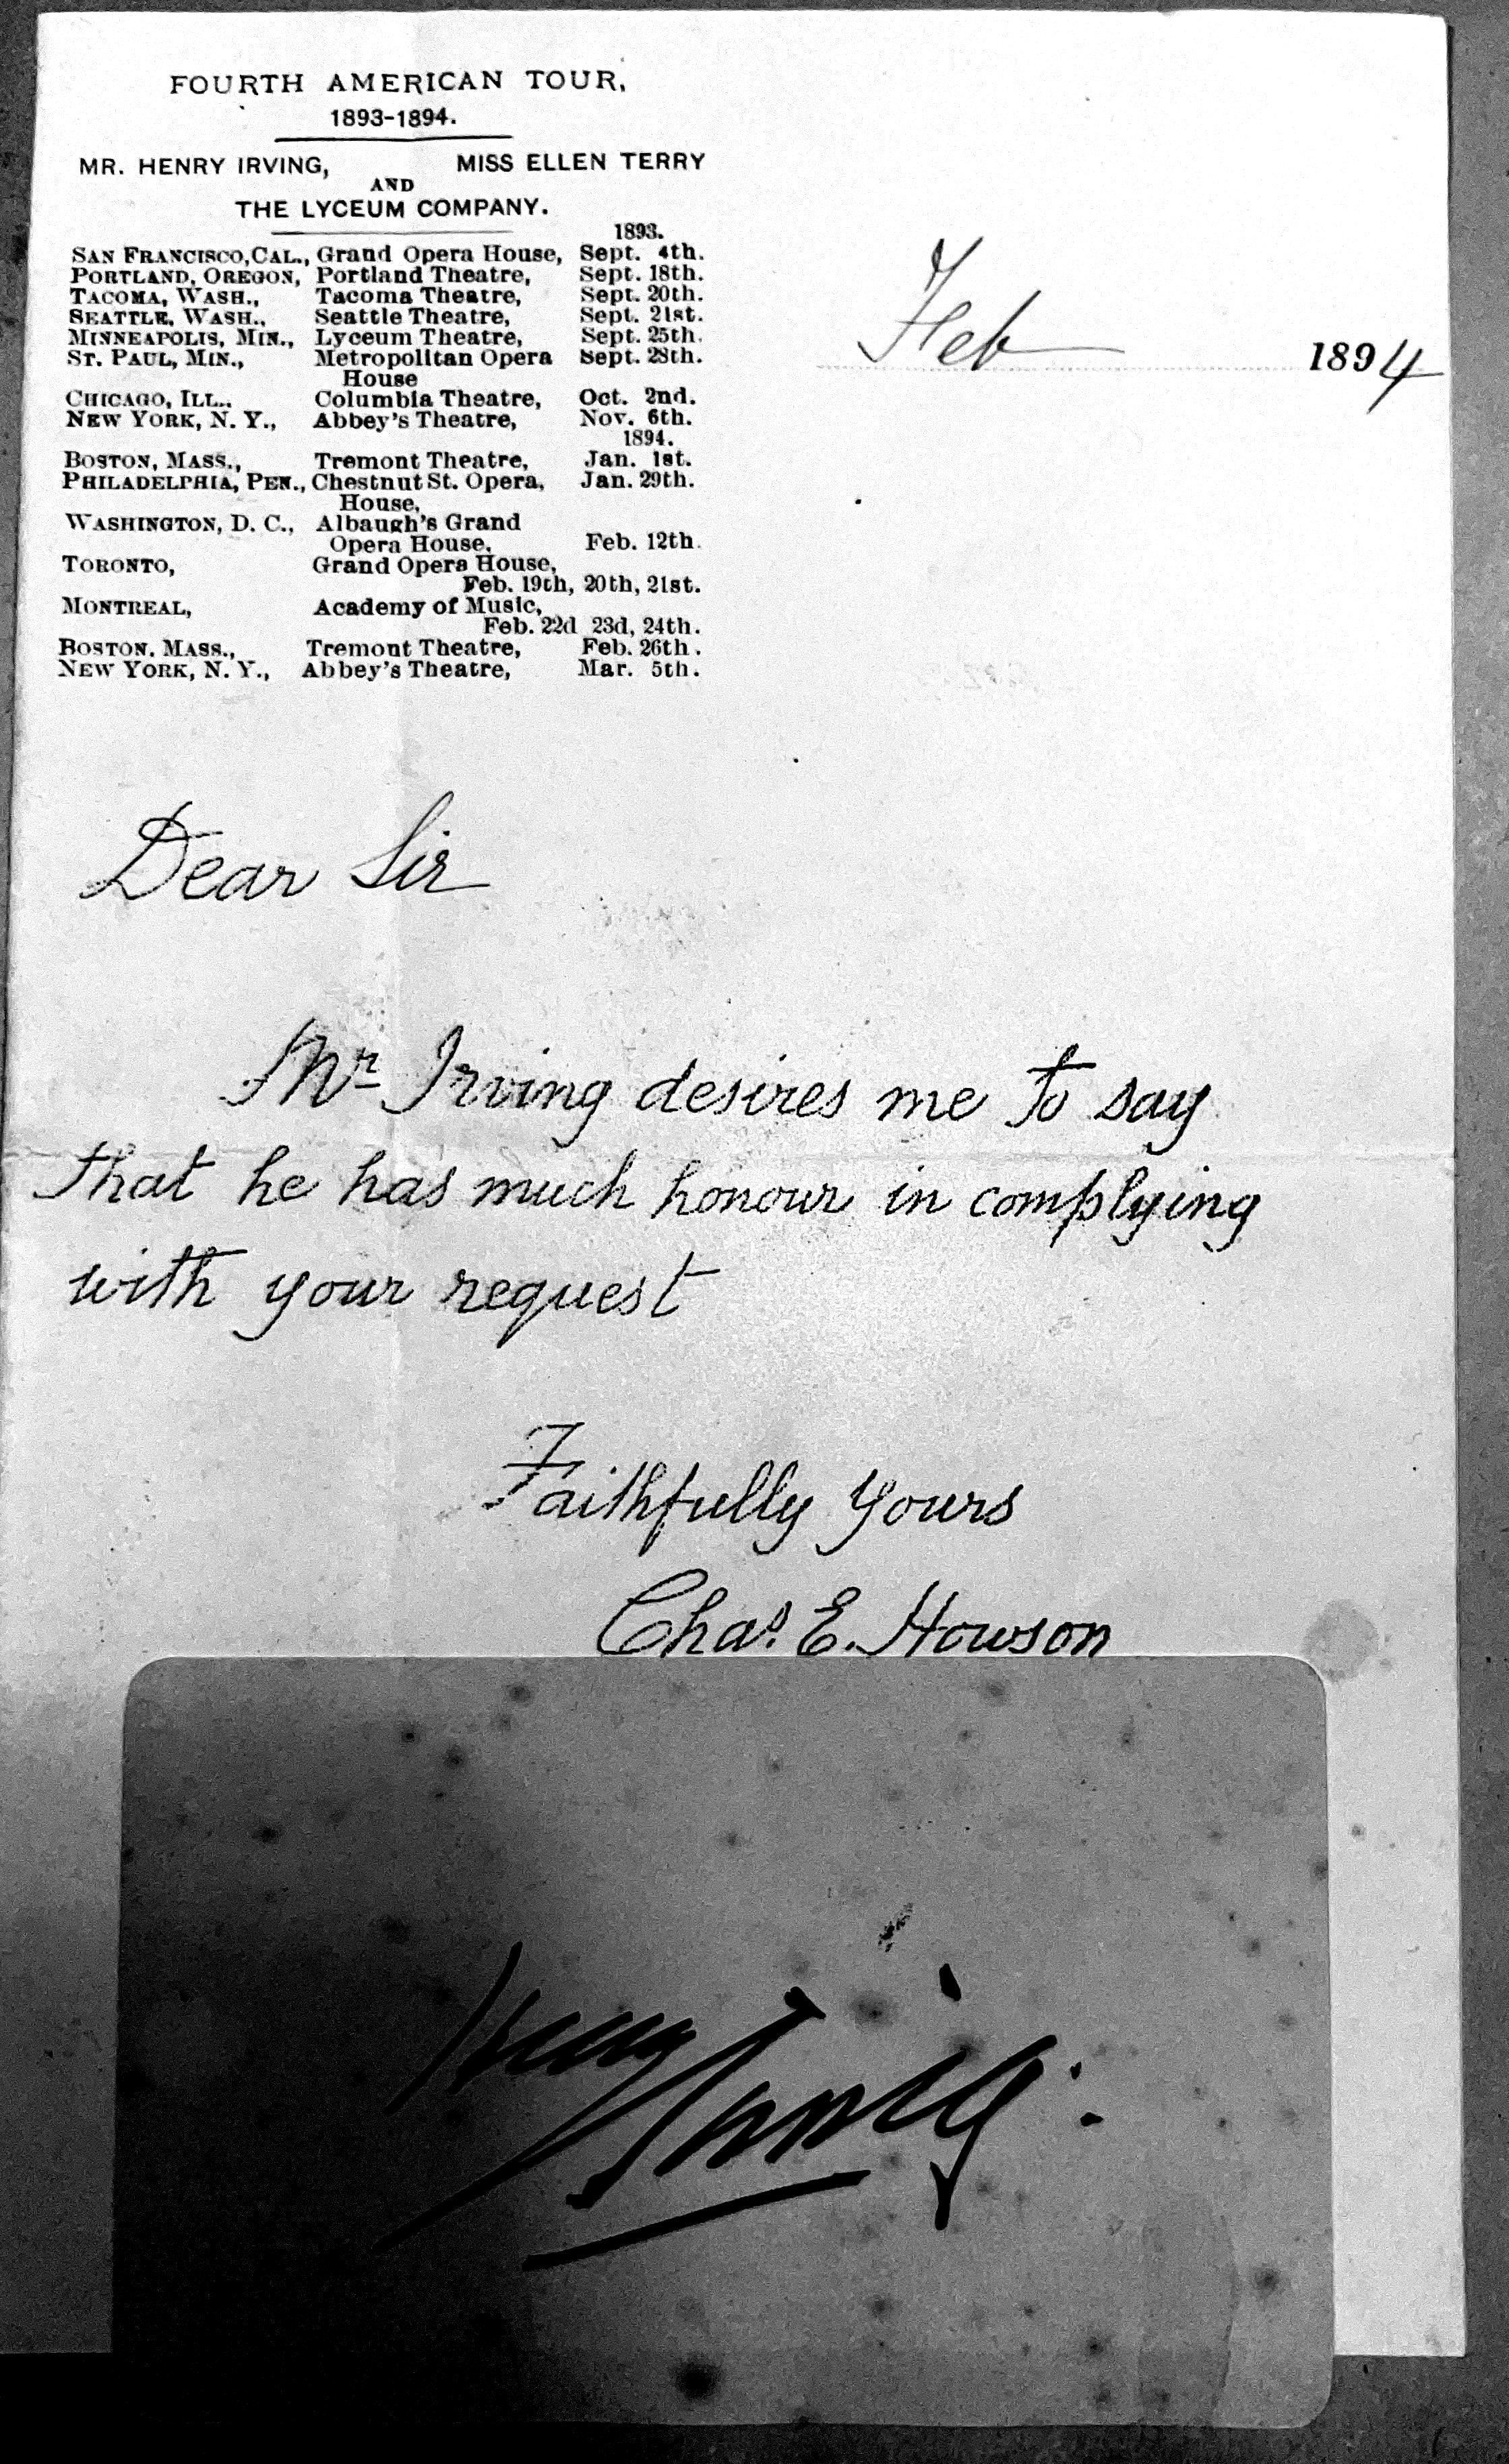 FOURTH AMERICAN TOUR,
1893-1894.
MR. HENRY IRVING, MISS ELLEN TERRY
AND
THE LYCEUM COMPANY.
1893.
SAN FRANCISCO, CAL., Grand Opera House, Sept. 4th.
PORTLAND, OREGON, Portland Theatre, Sept. 18th.
TACOMA, WASH., Tacoma Theatre, Sept. 20th.
SEATTLE, WASH., Seattle Theatre, Sept. 21st.
MINNEAPOLIS, MIN., Lyceum Theatre, Sept. 25th.
ST. PAUL, MIN., Metropolitan Opera Sept. 28th.
House
CHICAGO, ILL., Columbia Theatre, Oct. 2nd.
NEW YORK, N. Y., Abbey's Theatre, Nov. 6th.
1894.
BOSTON, MASS., Tremont Theatre, Jan. 1st.
PHILADELPHIA, PEN., Chestnut St. Opera, Jan. 29th.
House,
WASHINGTON, D. C., Albaugh's Grand
Opera House, Feb. 12th.
TORONTO, Grand Opera House,
Feb. 19th, 20th, 21st.
MONTREAL, Academy of Music,
Feb. 22d 23d, 24th.
BOSTON, MASS., Tremont Theatre, Feb. 26th.
NEW YORK, N. Y., Abbey's Theatre, Mar. 5th.
Feb 1894
Dear Sir
Mr Irving desires me to say
that he has much honour in complying
with your request
Faithfully Yours
Chas. E. Howson
Henry Irving